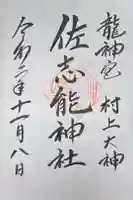 龍神宮 村上大神
佐志能神社
令和六年十一月八日